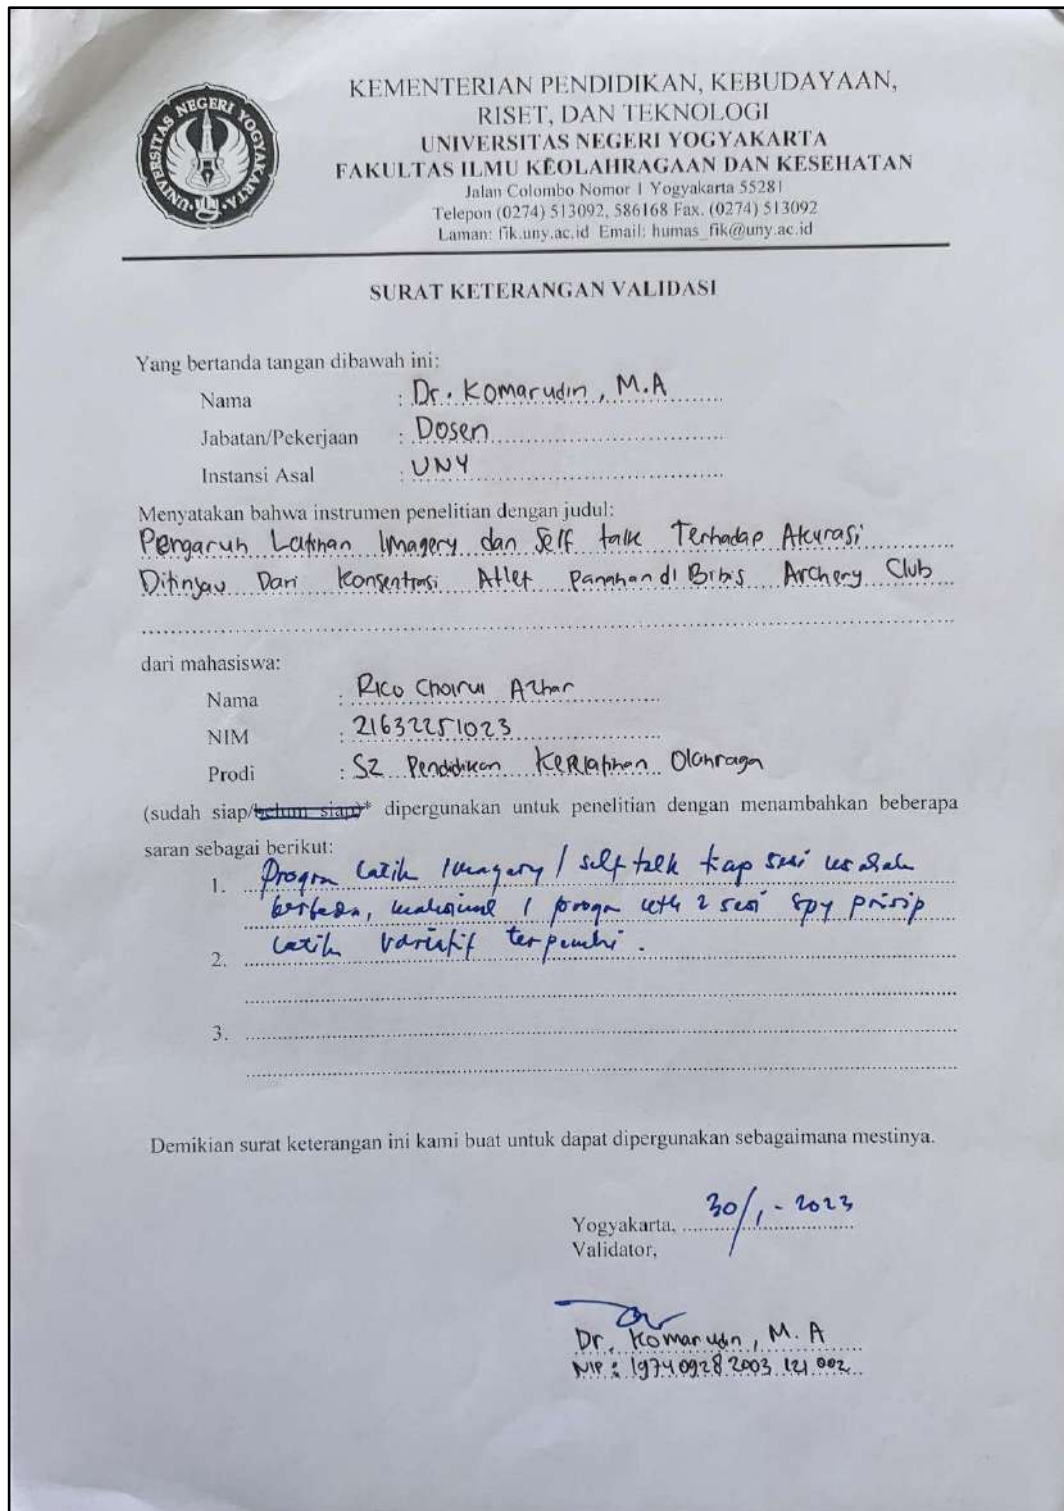 UNIVERSITAS NEGERI YOGYAKARTA
KEMENTERIAN PENDIDIKAN, KEBUDAYAAN,
RISET, DAN TEKNOLOGI
UNIVERSITAS NEGERI YOGYAKARTA
FAKULTAS ILMU KEOLAHRAGAAN DAN KESEHATAN
Jalan Colombo Nomor 1 Yogyakarta 55281
Telepon (0274) 513092, 586168 Fax. (0274) 513092
Laman: fik.uny.ac.id Email: humas_fik@uny.ac.id
SURAT KETERANGAN VALIDASI
Yang bertanda tangan dibawah ini:
Nama : Dr. Komarudin, M.A
Jabatan/Pekerjaan : Dosen
Instansi Asal : UNY
Menyatakan bahwa instrumen penelitian dengan judul:
Pengaruh Latihan Imagery dan Self talk Terhadap Akurasi
Ditinjau Dari Konsentrasi Atlet Panahan di Bibis Archery Club
dari mahasiswa:
Nama : Rico Choirul Azhar
NIM : 21632251023
Prodi : S2 Pendidikan Kepelatihan Olahraga
(sudah siap/belum siap)* dipergunakan untuk penelitian dengan menambahkan beberapa
saran sebagai berikut:
1. Progrm latih Imagery / self talk tiap sesi
berbeda, 1 2 sesi spy prisip
2. latih variatif terpenuhi.
3.
Demikian surat keterangan ini kami buat untuk dapat dipergunakan sebagaimana mestinya.
Yogyakarta, 30/1 - 2023
Validator,
Dr. Komarudin, M. A
NIP : 19740928 2003 121 002